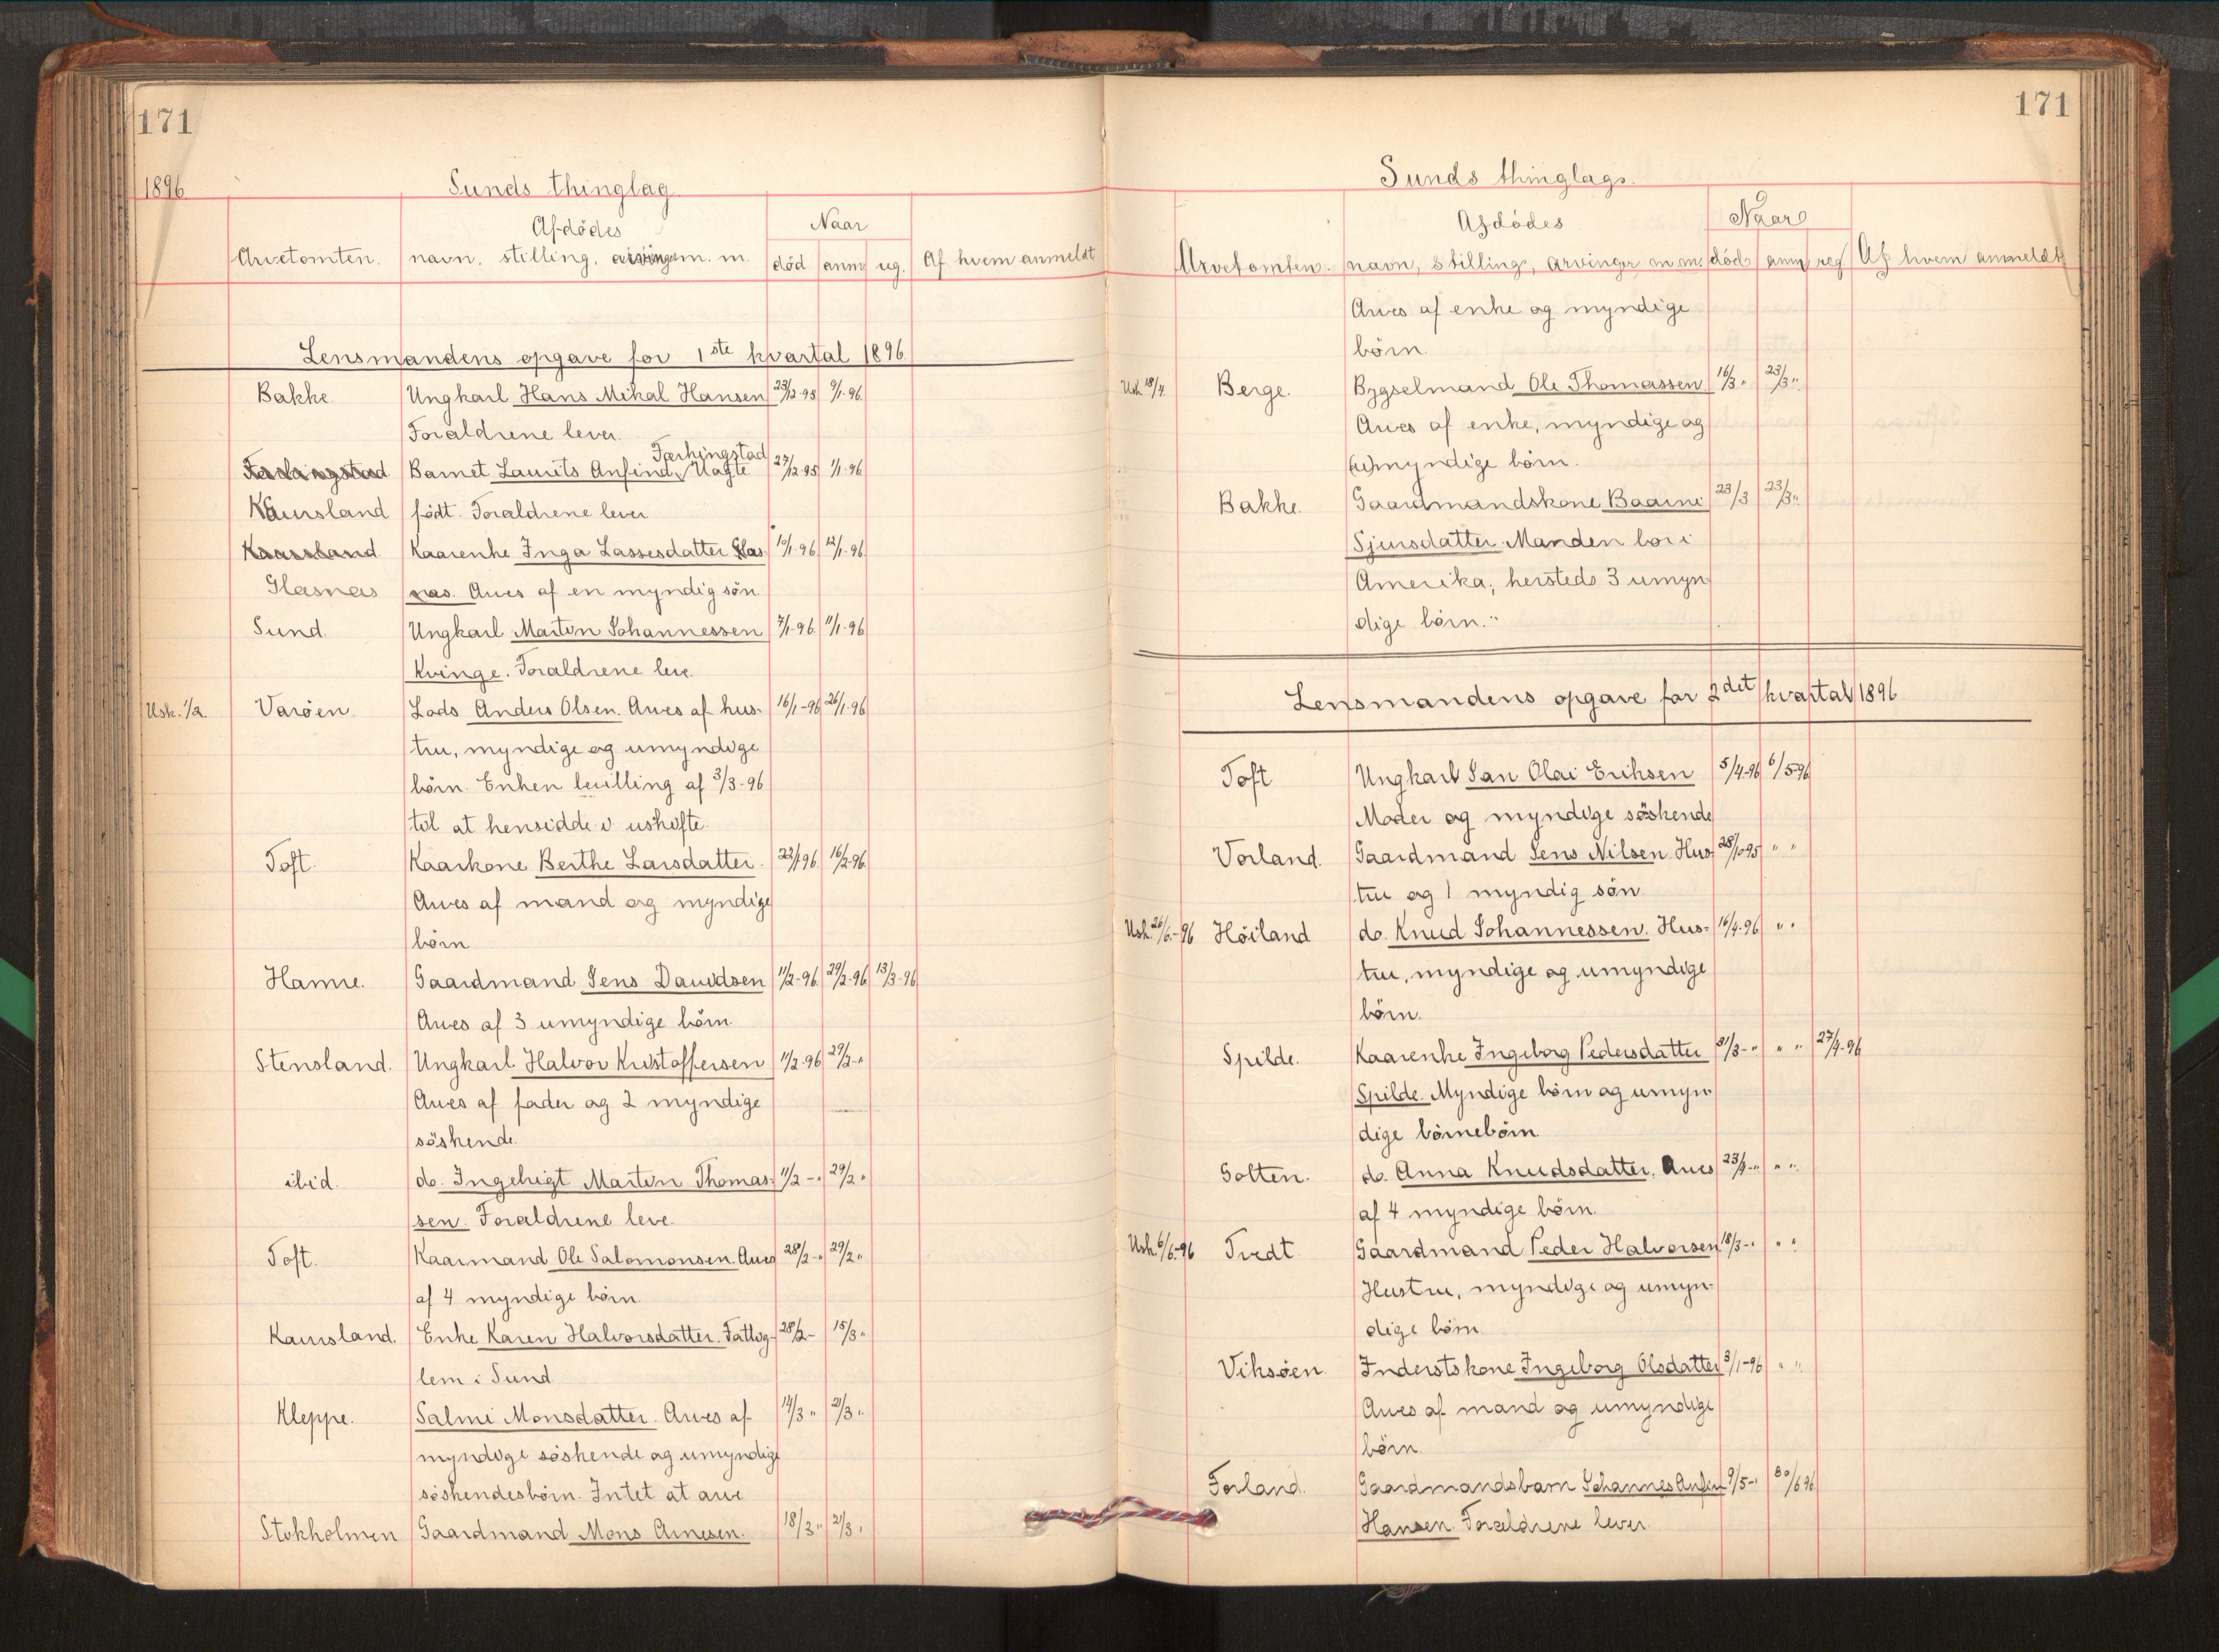 171
1896
Sunds thinglag.
Afdödes
Naar
Arvetomten. navn, stilling, m. m. död anm reg. Af hvem anmeldt
Lensmandens opgave for 1ste kvartal 1896
Bakke Ungkarl Hans Mikal Hansen 23/12-95 9/1-96
Foraldrene lever.
Tærkingstad
Barnet Laurits Anfind 27/12-95 1/1-96
født. Foraldrene lever
Kaarenke Inga Lassesdatter Glas- 10/1-96 12/1-96
Glasnes næs. Arves af en myndig sön
Sund. Ungkarl Martin Johannessen 7/1-96 11/1-96
Kvinge. Foraldrene leve.
Usk. 1/2. Varöen Lods Anders Olsen. Arves af hus- 16/1-96 26/1-96
tru, myndige og umyndige
börn. Enken bevilling af 3/3-96
til at hensidde i uskifte.
Toft. Kaarkone Berthe Larsdatter. 23/1-96 16/2-96
Arves af mand og myndige
börn
Hamre. Gaardmand Jens Davidsen 11/2-96 29/2-96 13/3-96
Arves af 3 umyndige börn.
Stensland. Ungkarl Halvor Kristoffersen 11/2-96 29/2-"
Arves af fader og 2 myndige
söskende.
ibid. do. Ingebrigt Martin Thomas- 11/2-" 29/2"
sen. Foraldrene leve.
Toft. Kaarmand Ole Salomonsen. Arves 28/2-" 29/2"
af 4 myndige börn.
Kausland. Enke Karen Halvorsdatter. Fattig- 28/2- 15/3"
lem i Sund
Kleppe. Salmi Monsdatter. Arves af 14/3" 21/3"
myndige söskende og umyndige
söskendesbörn. Intet at arve
Stokholmen Gaardmand Mons Arnesen. 18/3" 21/3"
171
Sunds thinglags.
Afdödes
Naar
Arvetomten. navn, stilling, arvinger m m. död anm reg. Af hvem anmeldt
Arves af enke og myndige
börn.
Usk 18/4. Berge. Bygselmand Ole Thomassen 16/3" 23/3"
Arves af enke, myndige og
(u)myndige börn.
Bakke. Gaardmandskone Baarni 23/3 23/3"
Sjursdatter. Manden bor i
Amerika; hersteds 3 umyn
dige börn."
Lensmandens opgave for 2det kvartal 1896
Toft Ungkarl Jan Olai Eriksen 5/4-96 6/5-96
Moder og myndige söskende
Vorland. Gaardmand Jens Nilsen. Hus- 28/10 95 " "
tru og 1 myndig sön.
Usk. 26/6-96 Höiland do. Knud Johannessen. Hus- 16/4-96 " "
tru, myndige og umyndige
börn.
Spilde. Kaarenke Ingeborg Pedersdatter 31/3-" " " 27/4-96
Spilde. Myndige börn og umyn-
dige börnebörn
Golten. do. Anna Knudsdatter. Arves 23/4-" " "
af 4 myndige börn.
Usk. 6/6-96 Tvedt Gaardmand Peder Halvorsen. 18/3-" " "
Hustru, myndige og umyn-
dige börn
Viksöen Inderstskone Ingeborg Olsdatter 3/1-96 " "
Arves af mand og umyndige
börn.
Forland. Gaardmandsbarn Johannes Anfin 9/5-" 30/6 96
Hansen. Foraldrene lever